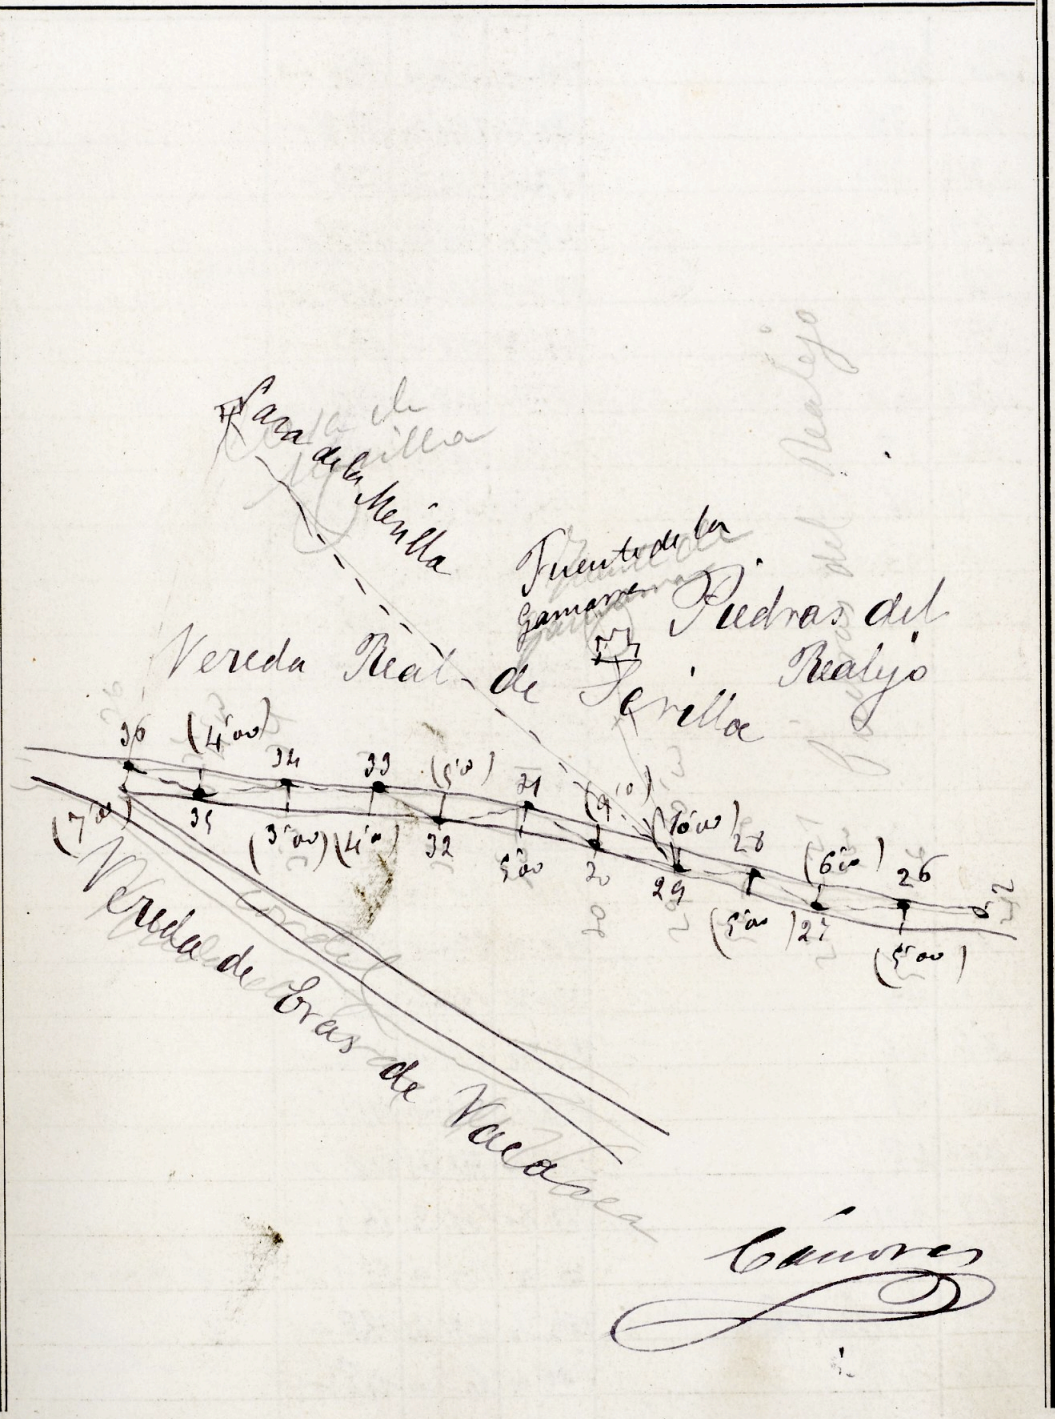 Casa
de la Merilla
Fuente de la
Gamarra
Piedras del
Realejo
Vereda Real de Sevilla
36 (4'00) 34 33 (5'00) 31 (9'10) (10'00) 28 (6'00) 26
(7'00) 35 (3'00) (4'00) 32 5'00 30 29 (5'00) 27 (5'00)
Vereda de Eras de Vacasea
Cánovas